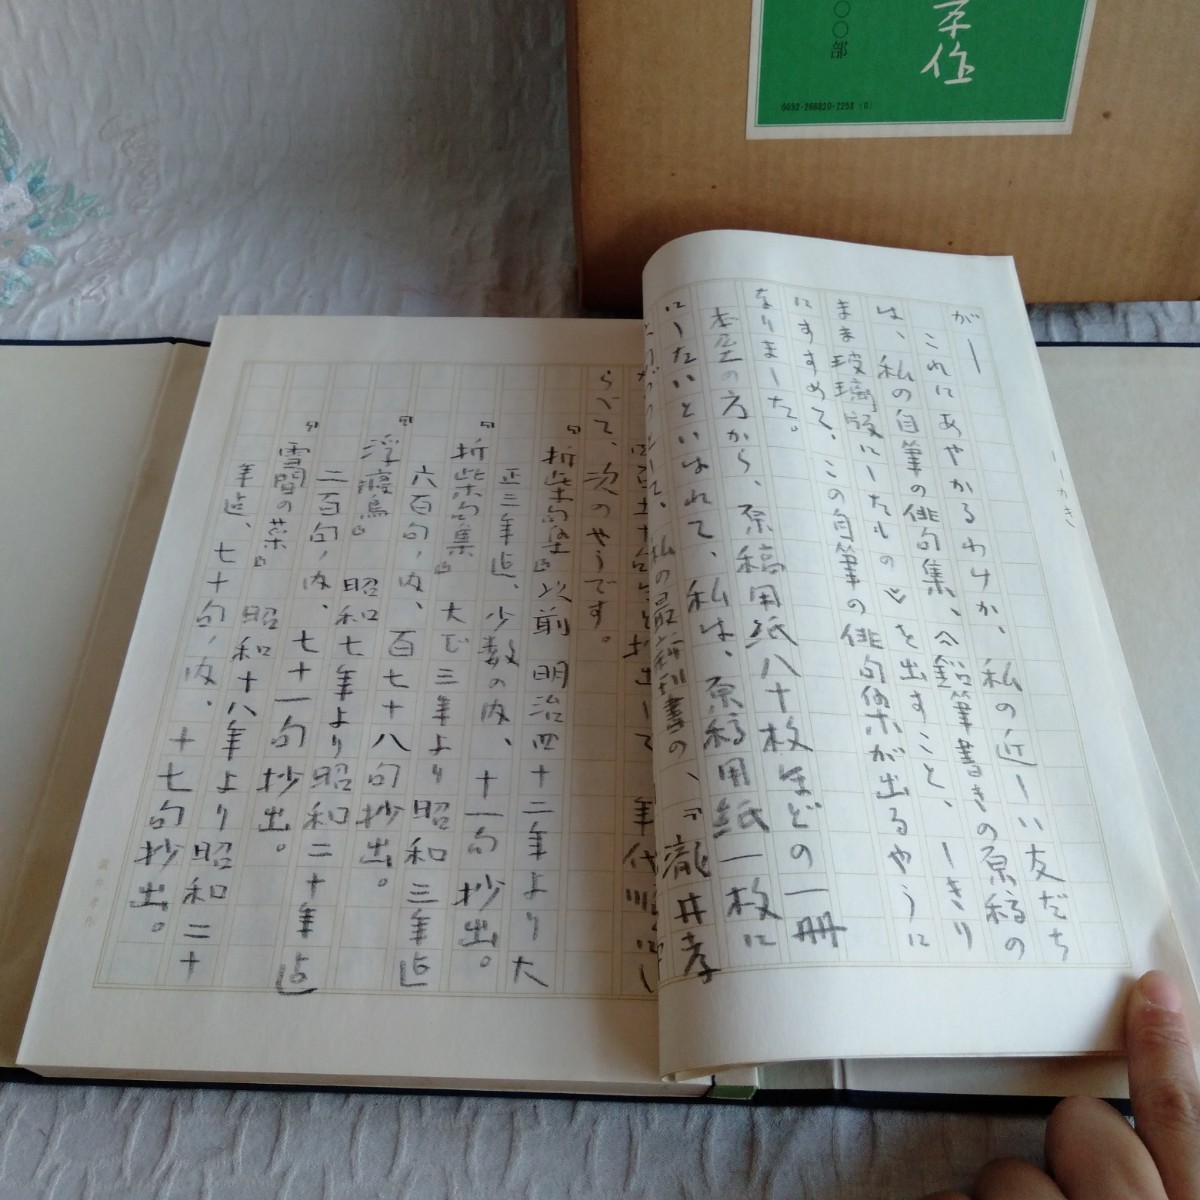 孝作
〇〇部
0092-266820-2253 (0)
がき
が、
これにあやかるわけか、私の近しい友だち
は、私の自筆の俳句集、〈鉛筆書きの原稿の
まま玻璃版にしたもの〉を出すこと、しきり
にすすめて、この自筆の俳句集が出るやうに
なりました。
本屋の方から、原稿用紙八十枚ほどの一冊
にしたいといはれて、私は、原稿用紙一枚に
して、私の最新刊書の、『瀧井孝
四百五十句を抄出して年代順に
らべて、次のやうです。
『折柴句集』以前 明治四十二年より大
正三年迄、少数の内、十一句抄出。
『折柴句集』大正三年より昭和三年迄
六百句ノ内、百七十八句抄出。
『浮寝鳥』昭和七年より昭和二十年迄
二百句ノ内、七十一句抄出。
『雪間の菜』昭和十八年より昭和二十
年迄、七十句ノ内、十七句抄出。